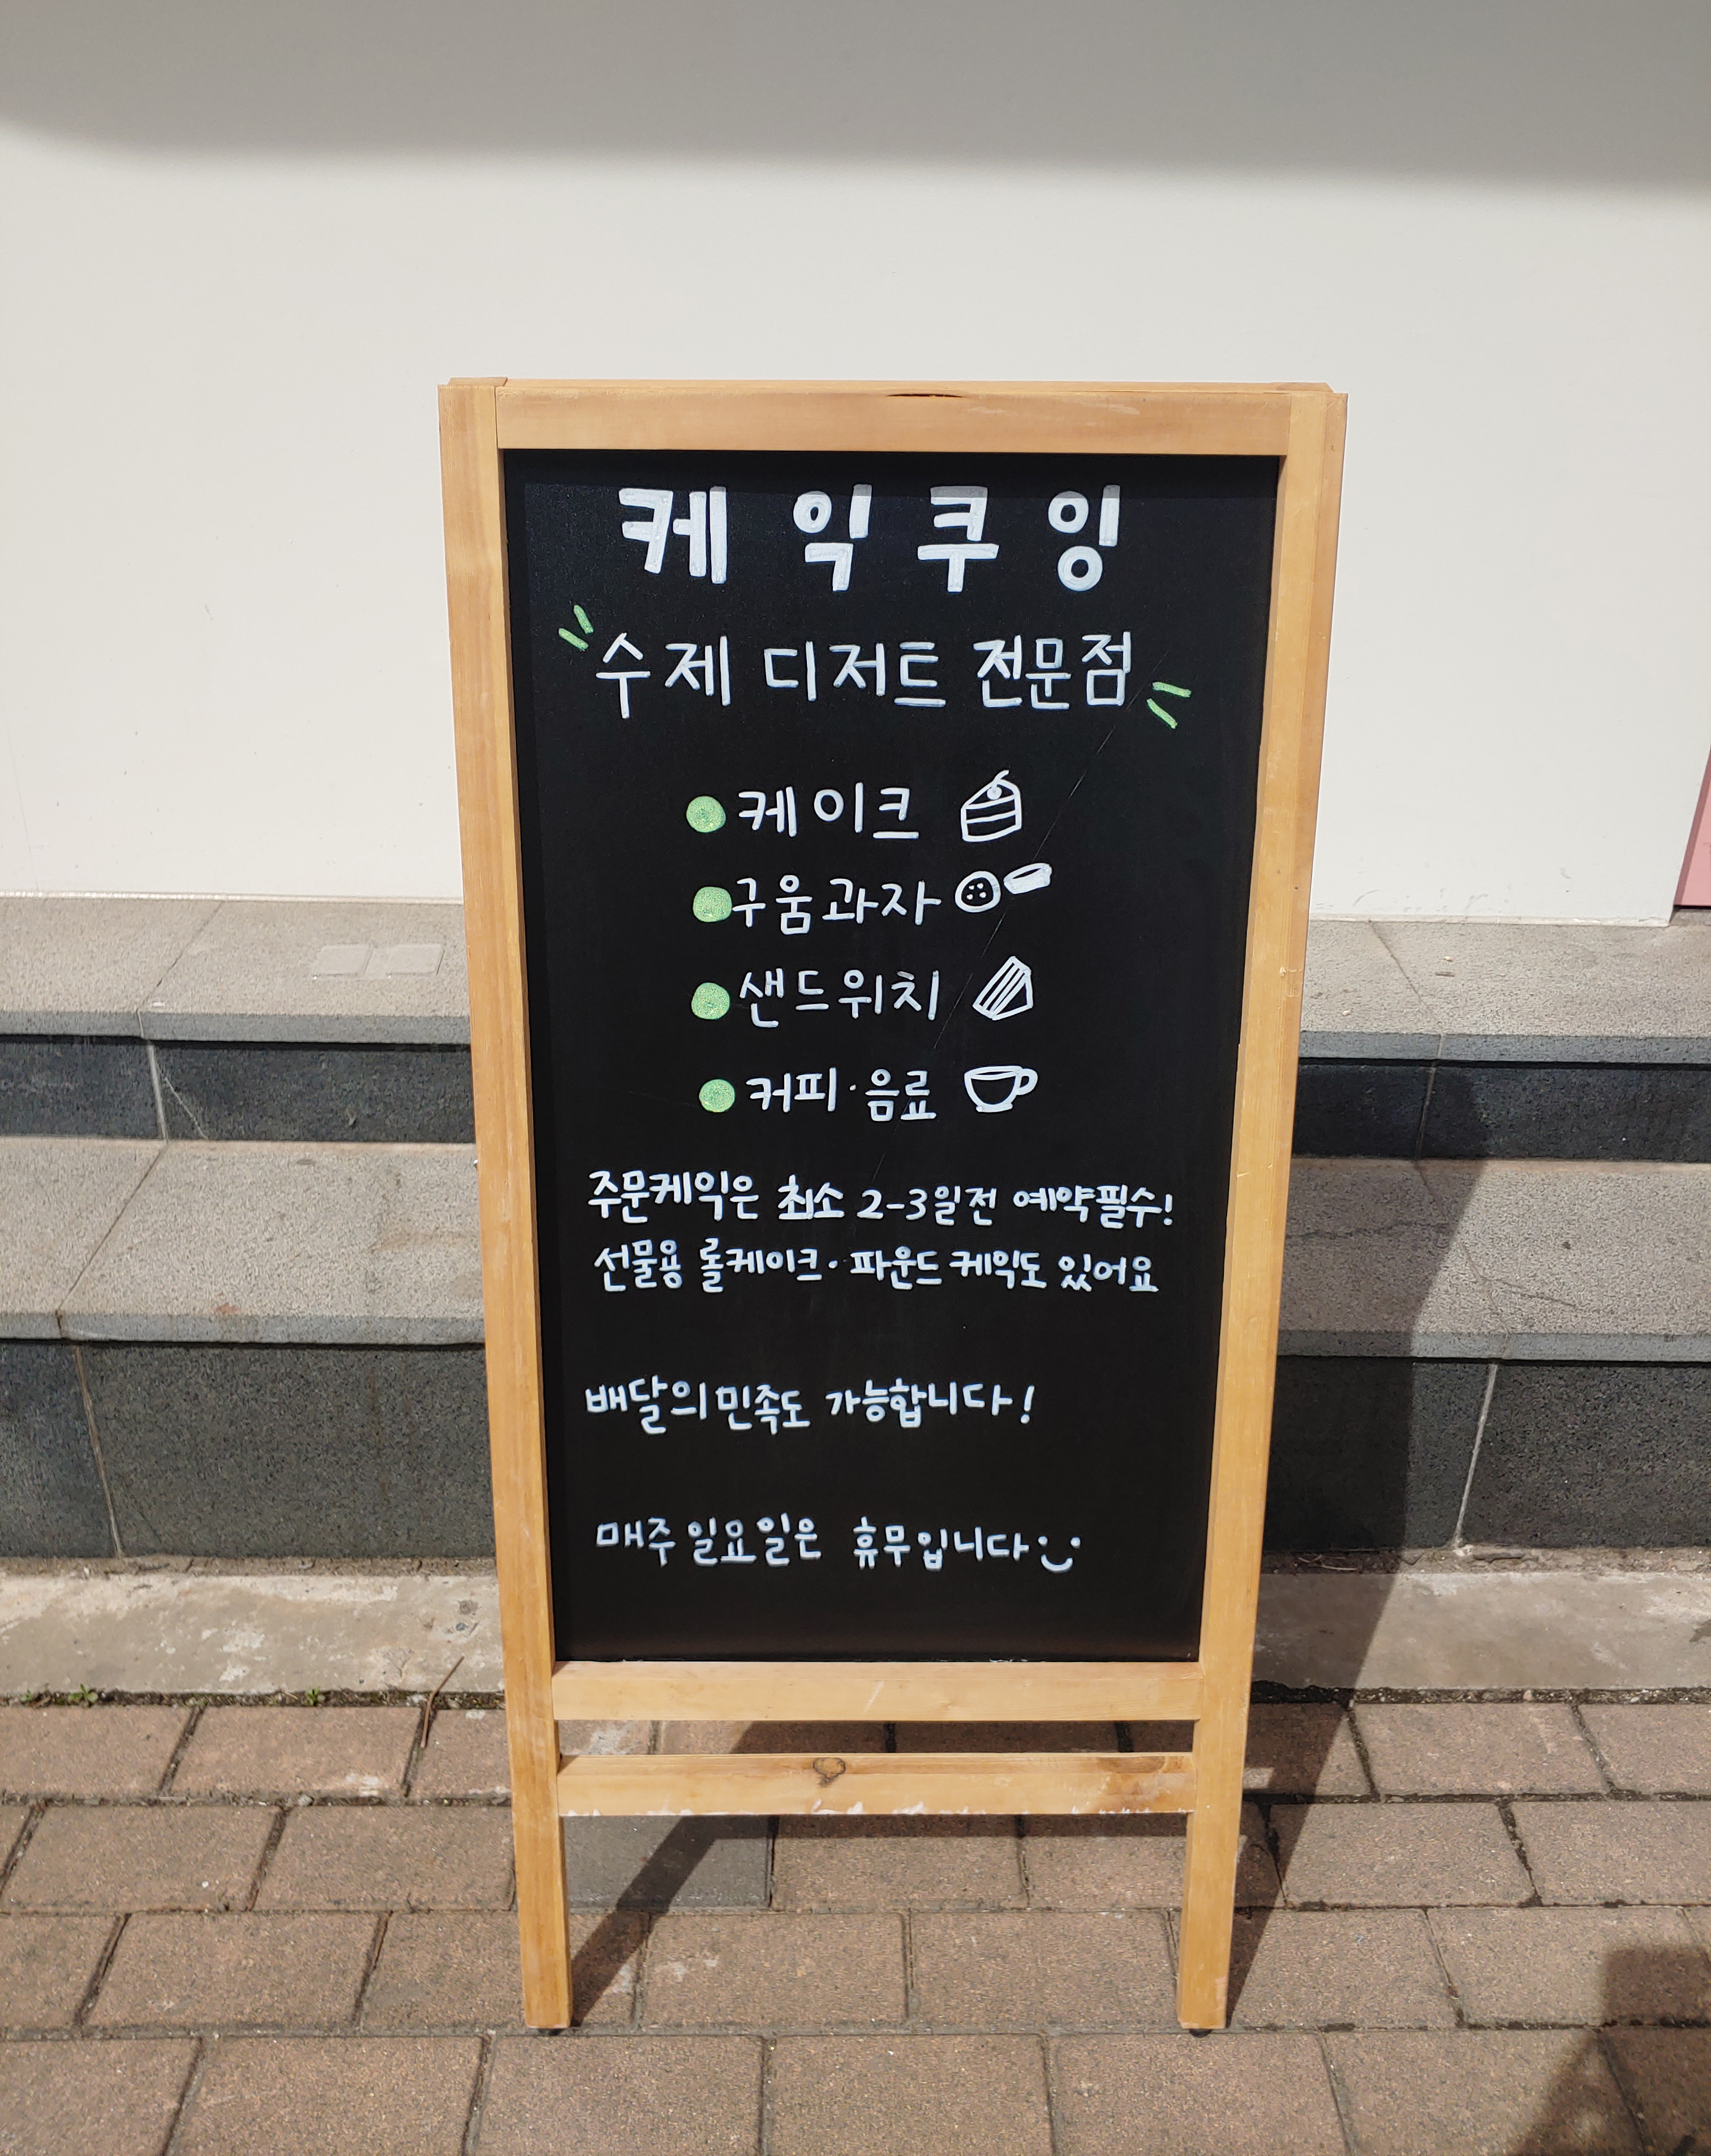 케익쿠잉
수제 디저트 전문점
케이크
구움과자
샌드위치
커피·음료
주문케익은 최소 2-3일전 예약필수!
선물용 롤케이크·파운드케익도 있어요
배달의민족도 가능합니다!
매주 일요일은 휴무입니다